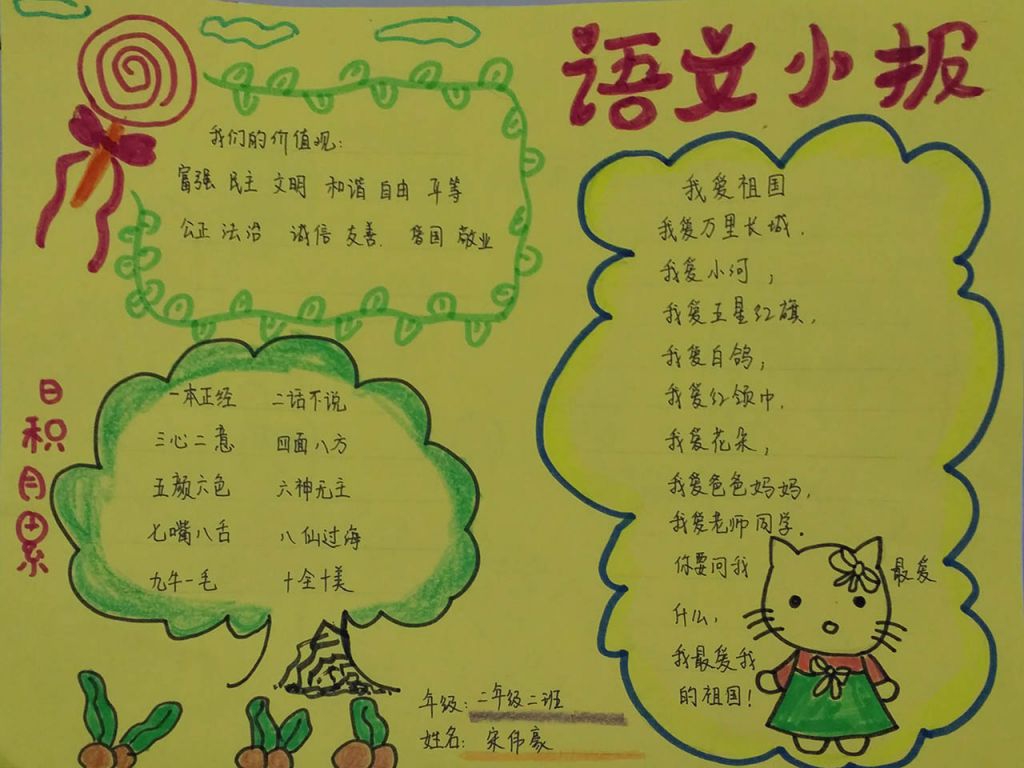 语文小报
我们的价值观：
富强 民主 文明 和谐 自由 平等
公正 法治 诚信 友善. 爱国 敬业
日积月累
一本正经 二话不说
三心二意 四面八方
五颜六色 六神无主
七嘴八舌 八仙过海
九牛一毛 十全十美
我爱祖国
我爱万里长城.
我爱小河；
我爱五星红旗.
我爱白鸽；
我爱红领巾.
我爱花朵，
我爱爸爸妈妈.
我爱老师同学.
你要问我 最爱
什么，
我最爱我
的祖国！
年级：二年级二班
姓名：宋伟豪